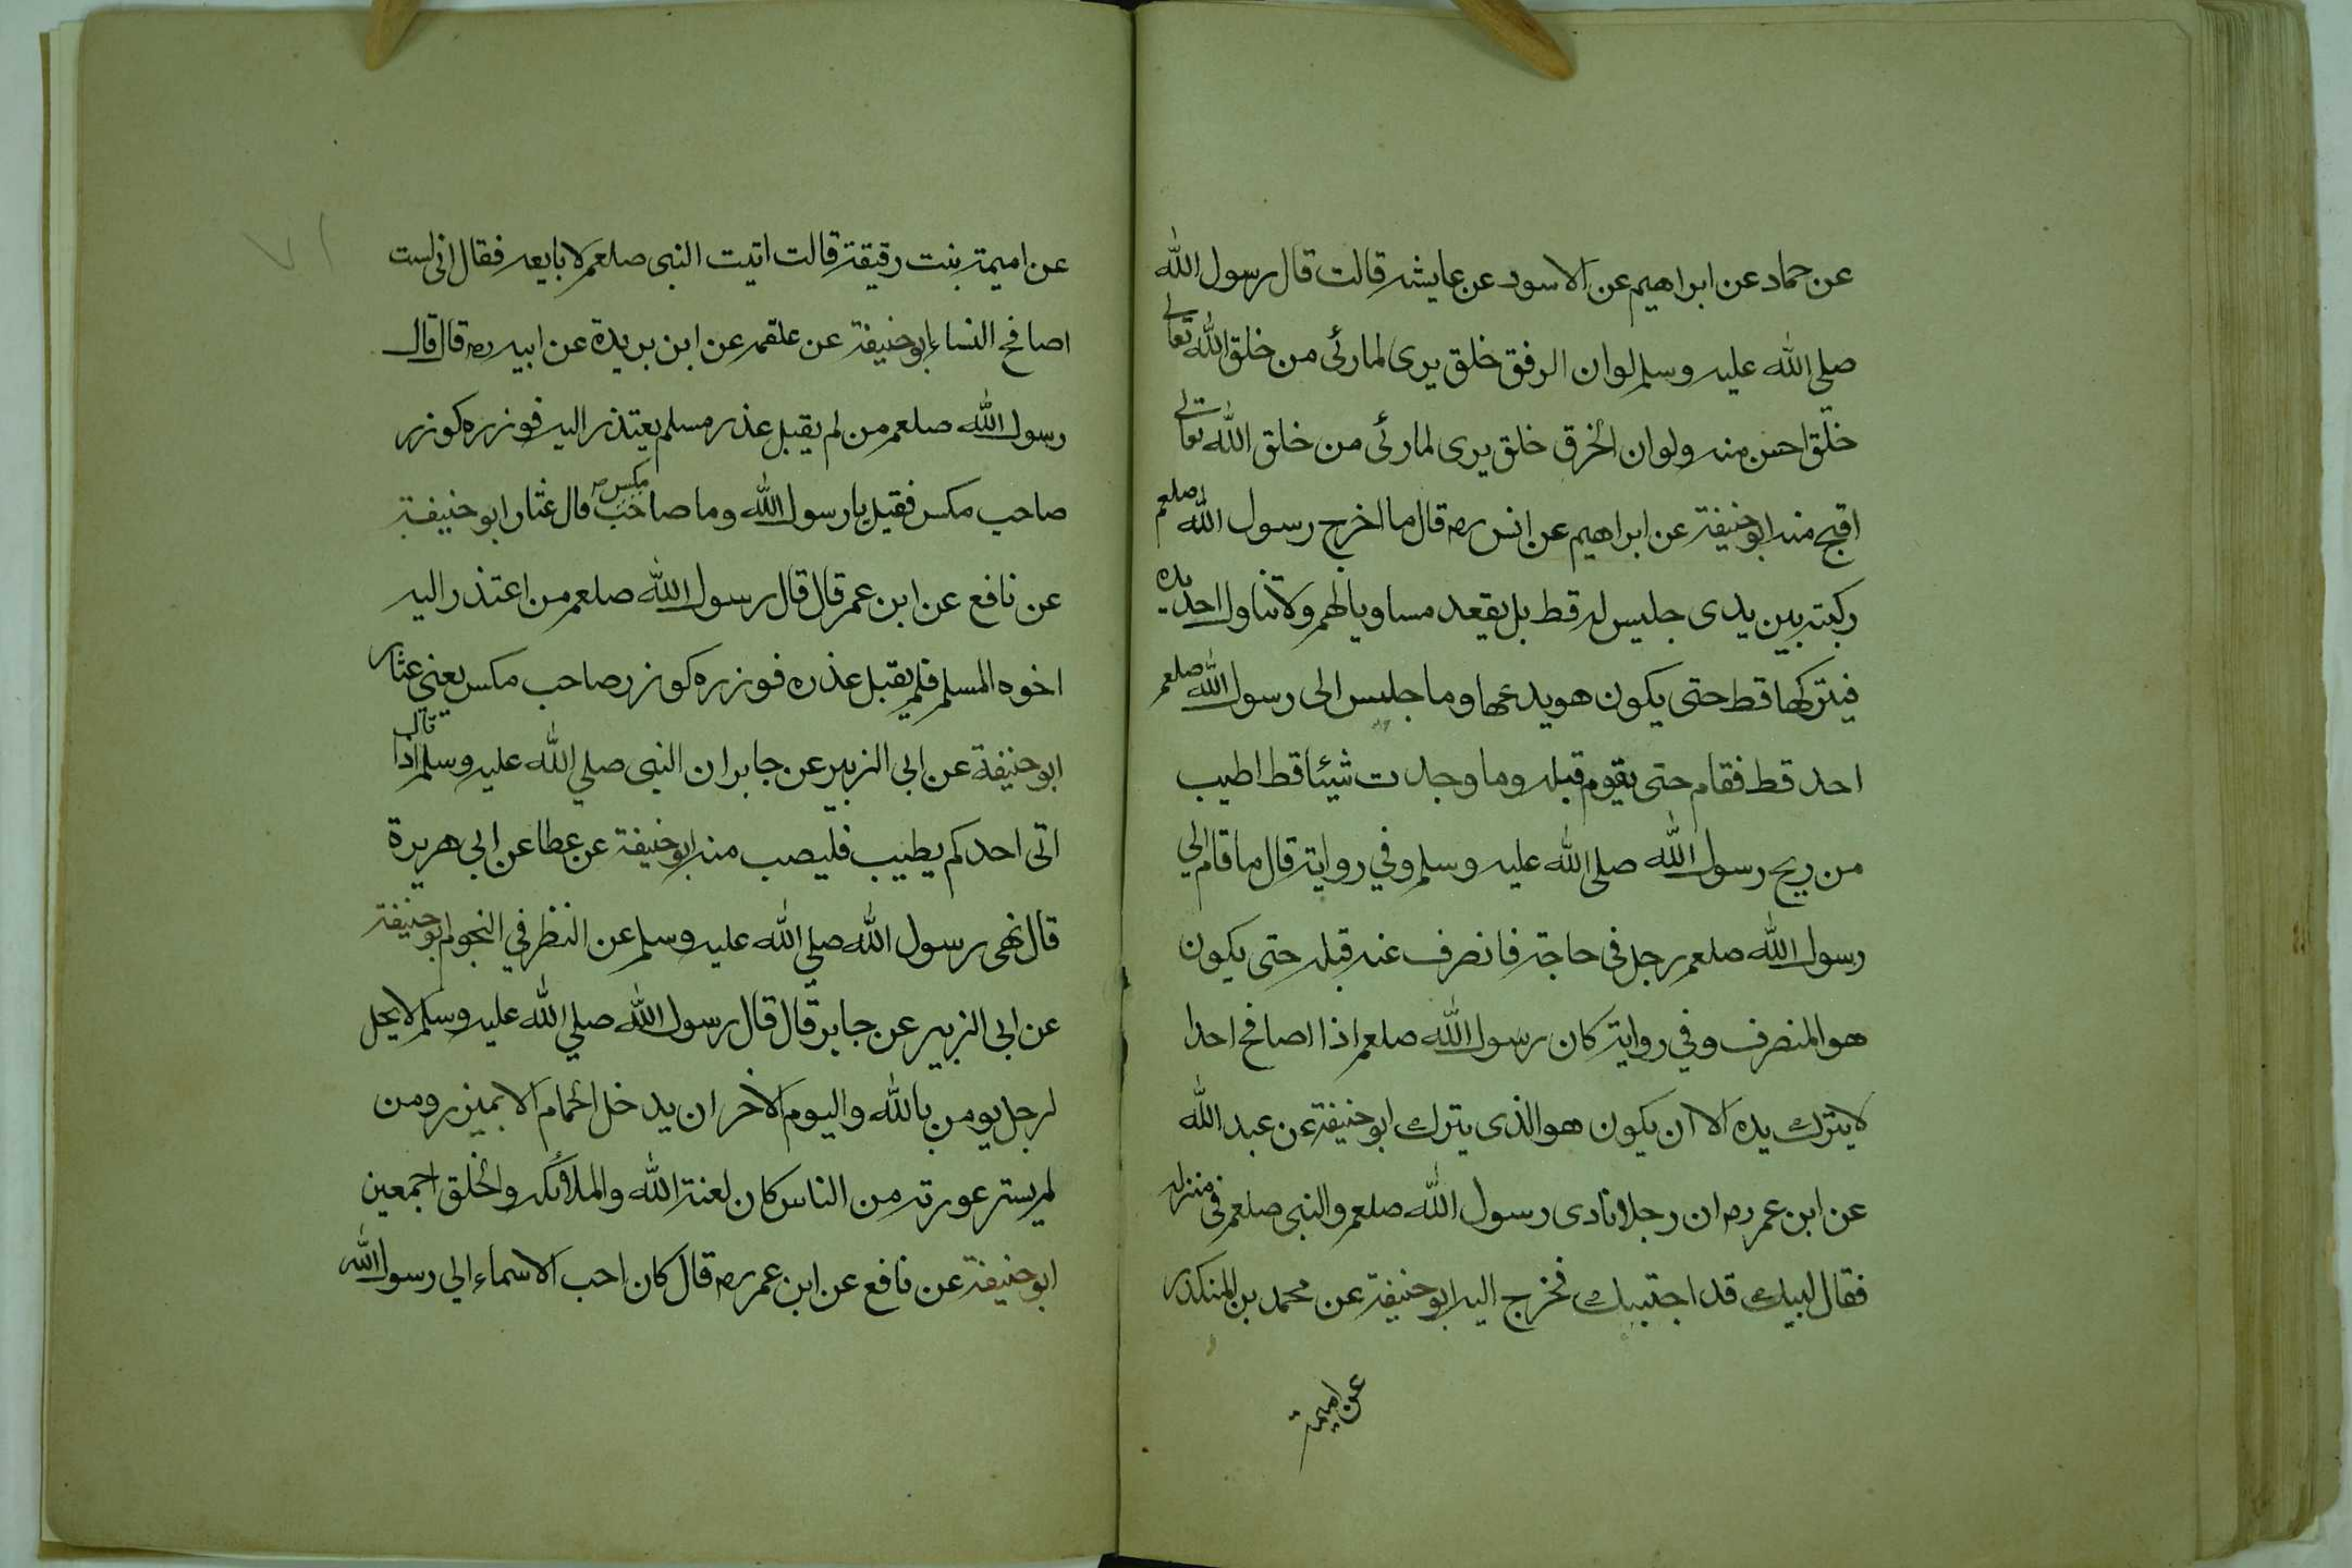 عن حماد عن ابراهيم عن الاسود عن عايشه قالت قال رسول الله
صلي الله عليه وسلم لو ان الرفق خلق يرى لما رئى من خلق الله تعالى
خلق احسن منه ولو ان الخرق خلق يرى لما رئى من خلق الله تعالى
اقبح منه ابو حنيفة عن ابراهيم عن انس رضه قال ما اخرج رسول الله صلعم
ركبته بين يدى جليس له قط بل يقعد مساويا لهم ولا تناول احد يده
فيتركها قط حتى يكون هو يدعها وما جليس الى رسول الله صلعم
احد قط فقام حتى يقوم قبله وما وجدت شيئا قط اطيب
من ريح رسول الله صلى الله عليه وسلم وفي رواية قال ما قام الي
رسول الله صلعم رجل فى حاجة فانصرف عنه قبله حتى يكون
هو المنصرف وفي رواية كان رسول الله صلعم اذا اصافح احدا
لا يترك يده الا ان يكون هو الذى يترك ابو حنيفة عن عبد الله
عن ابن عمر رضه ان رجلا نادى رسول الله صلعم والنبى صلعم فى منزله
فقال لبيك قد اجتبيك فخرج اليه ابو حنيفة عن محمد بن المنكدر
عن اميمة
٧١
عن اميمة بنت رقيقة قالت اتيت النبى صلعم لابايعه فقال انى لست
اصافح النساء ابو حنيفة عن علقمه عن ابن بريدة عن ابيه رضه قال قال
رسول الله صلعم من لم يقبل عذر مسلم يعتذر اليه فوزره كوزر
صاحب مكس فقيل يا رسول الله وما صاحب مكس قال عشار ابو حنيفة
عن نافع عن ابن عمر قال قال رسول الله صلعم من اعتذر اليه
اخوه المسلم فلم يقبل عذره فوزره كوزر صاحب مكس يعنى عشار
ابو حنيفة عن ابى الزبير عن جابر ان النبى صلي الله عليه وسلم قال اذا
اتى احدكم بطيب فليصب منه ابو حنيفة عن عطا عن ابى هريرة
قال نهى رسول الله صلي الله عليه وسلم عن النظر في النجوم ابو حنيفة
عن ابى الزبير عن جابر قال قال رسول الله صلي الله عليه وسلم لا يحل
لرجل يومن بالله واليوم الاخر ان يدخل الحمام الا بميزر ومن
لم يستر عورته من الناس كان لعنة الله والملائكه والخلق اجمعين
ابو حنيفة عن نافع عن ابن عمر رضه قال كان احب الاسماء الي رسول الله